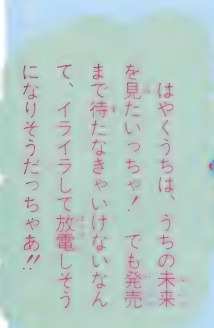 はやくうちは、うちの未来
を見たいっちゃ！でも発売
まで待たなきゃいけないなん
て、イライラして放電しそう
になりそうだっちゃあ!!